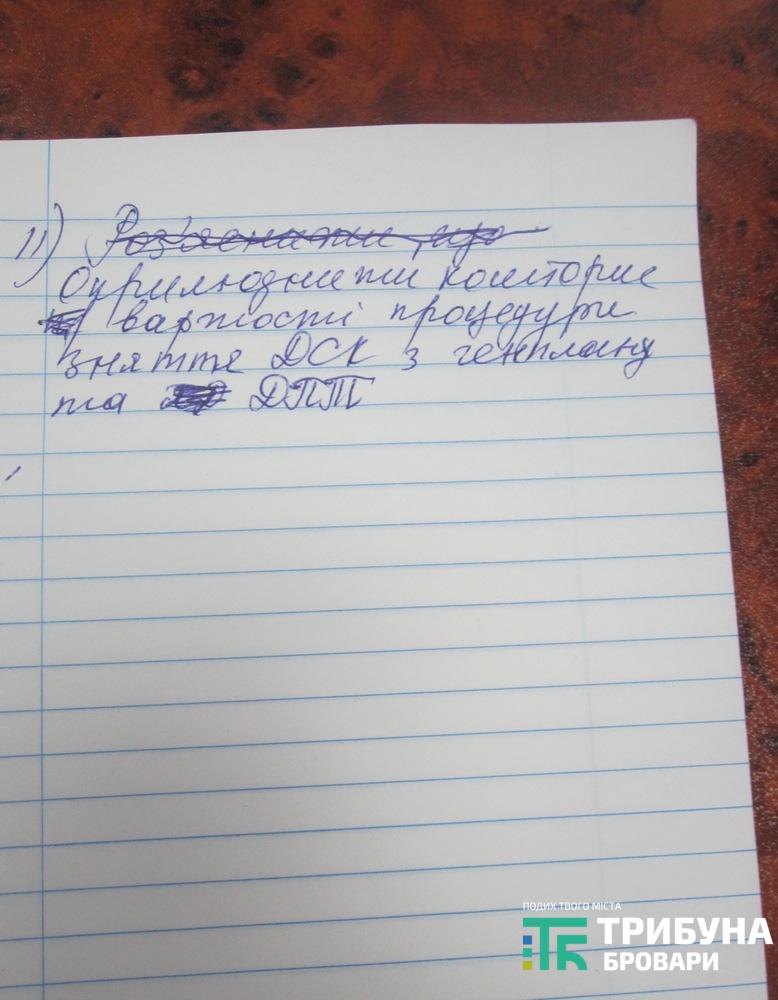 11) Роз'яснити, що
Оприлюднити кошторис
вартості процедури
зняття ДСК з генплану
та ДПТ
ПОДИХ ТВОГО МІСТА
ТРИБУНА
БРОВАРИ